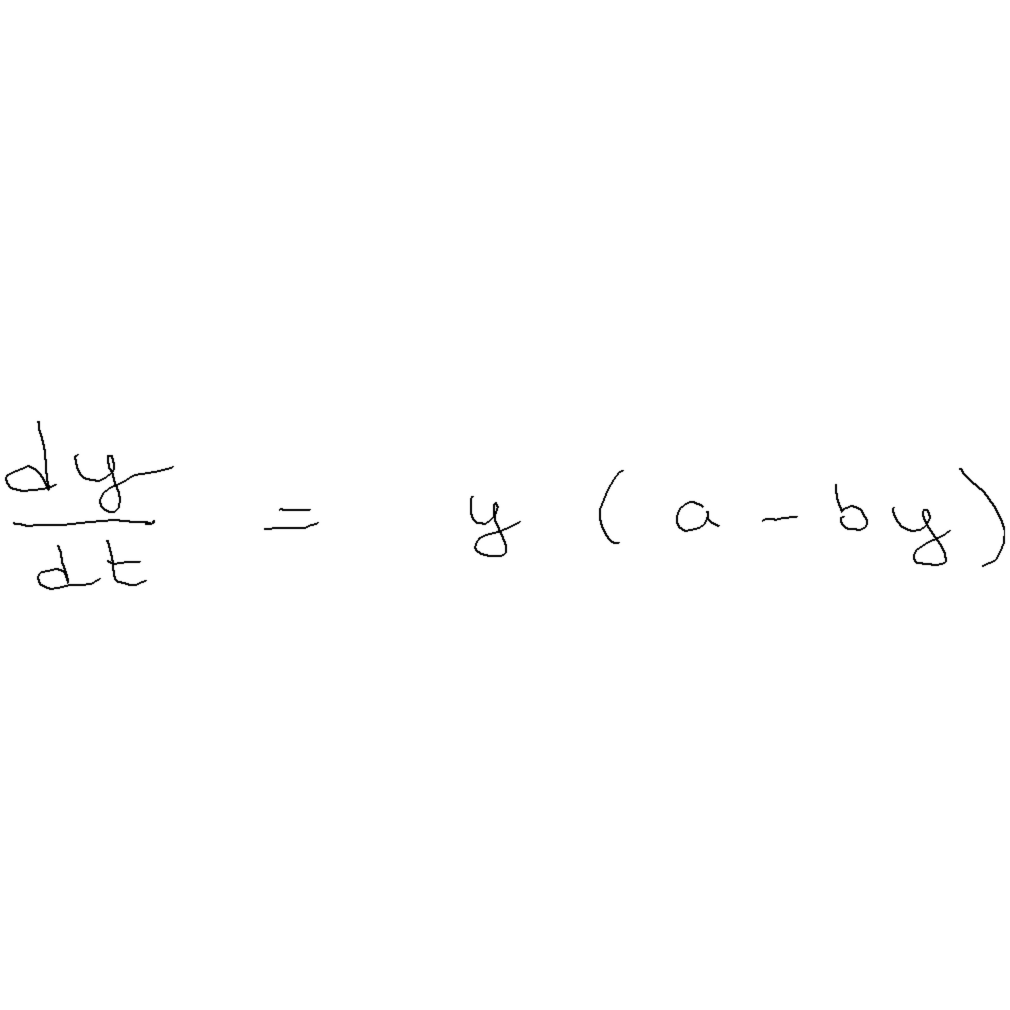 dy/dt = y (a - by)